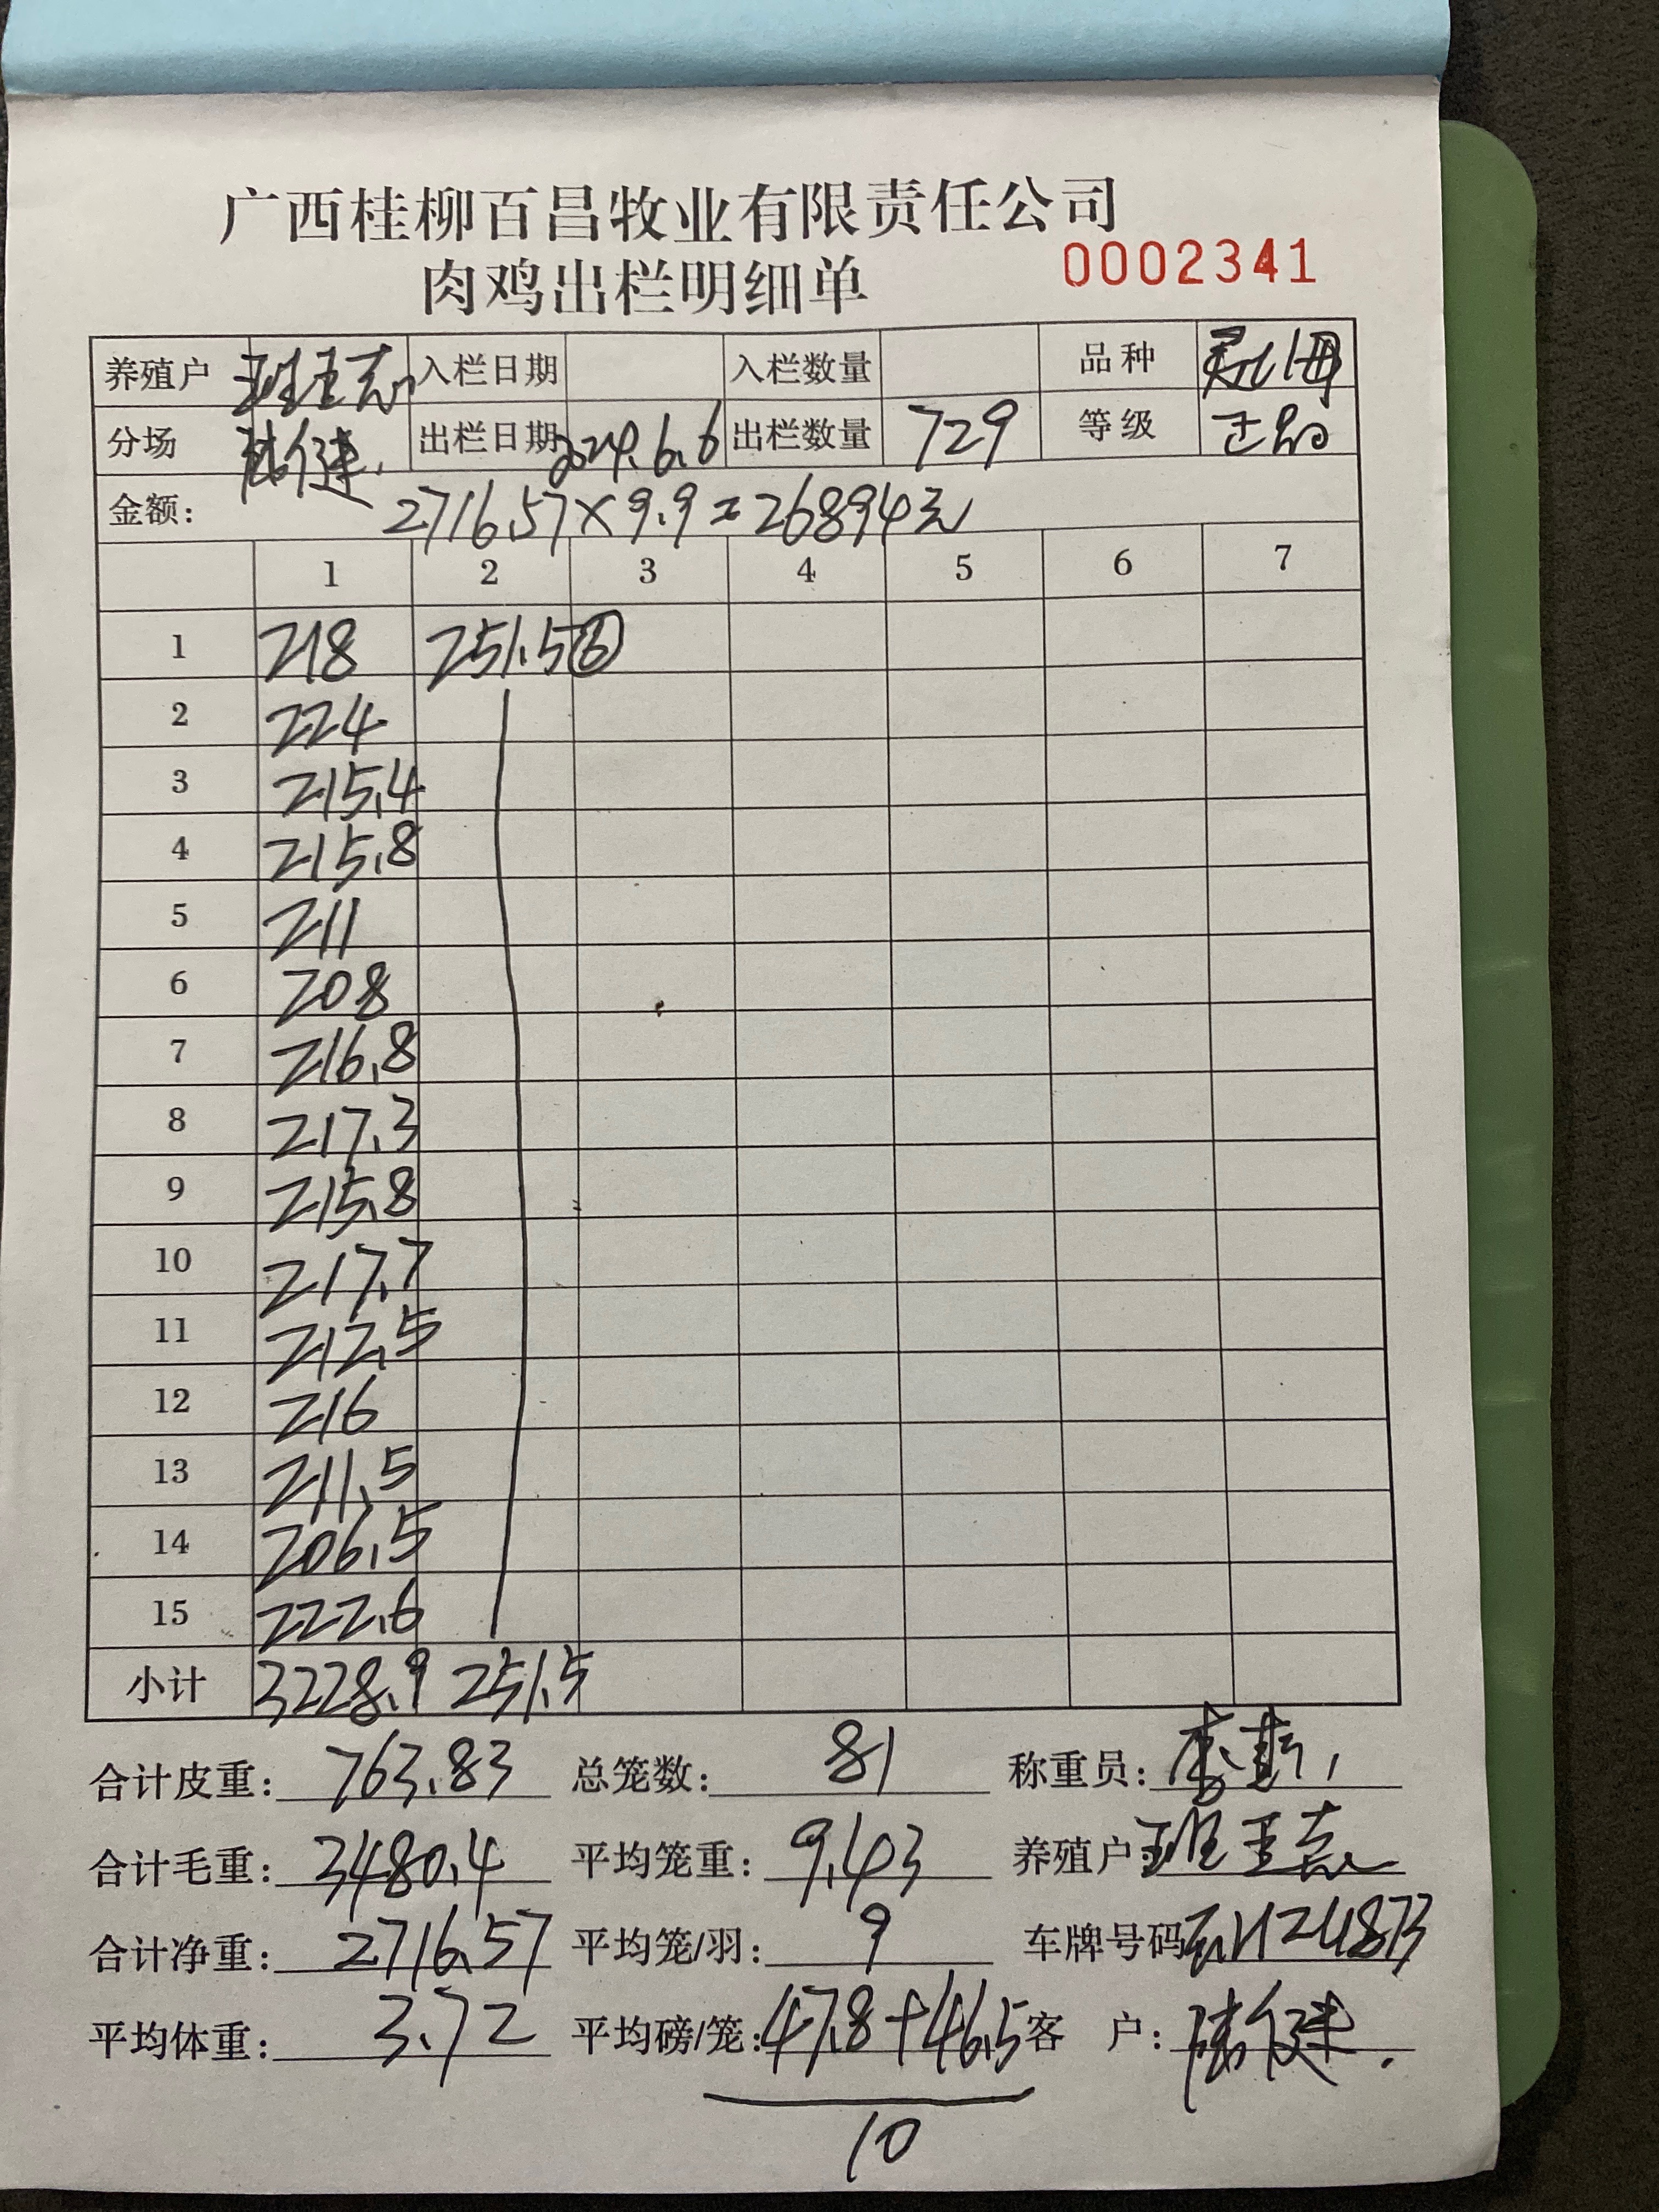 广西桂柳百昌牧业有限责任公司
肉鸡出栏明细单 0002341
养殖户 班玉志 入栏日期 入栏数量 品种
分场 陆健. 出栏日期 2024.6.6 出栏数量 729 等级 正品
金额: 2716.57×9.9=26894元
1 2 3 4 5 6 7
1 218 251.5⑥
2 224
3 215.4
4 215.8
5 211
6 208
7 216.8
8 217.3
9 215.8
10 217.7
11 212.5
12 216
13 211.5
14 206.5
15 222.6
小计 3228.9 251.5
合计皮重: 763.83 总笼数: 81 称重员:
合计毛重: 3480.4 平均笼重: 9.43 养殖户: 班玉志
合计净重: 2716.57 平均笼/羽: 9 车牌号码
平均体重: 3.72 平均磅/笼: 47.8+46.5 客 户: 陆健.
10